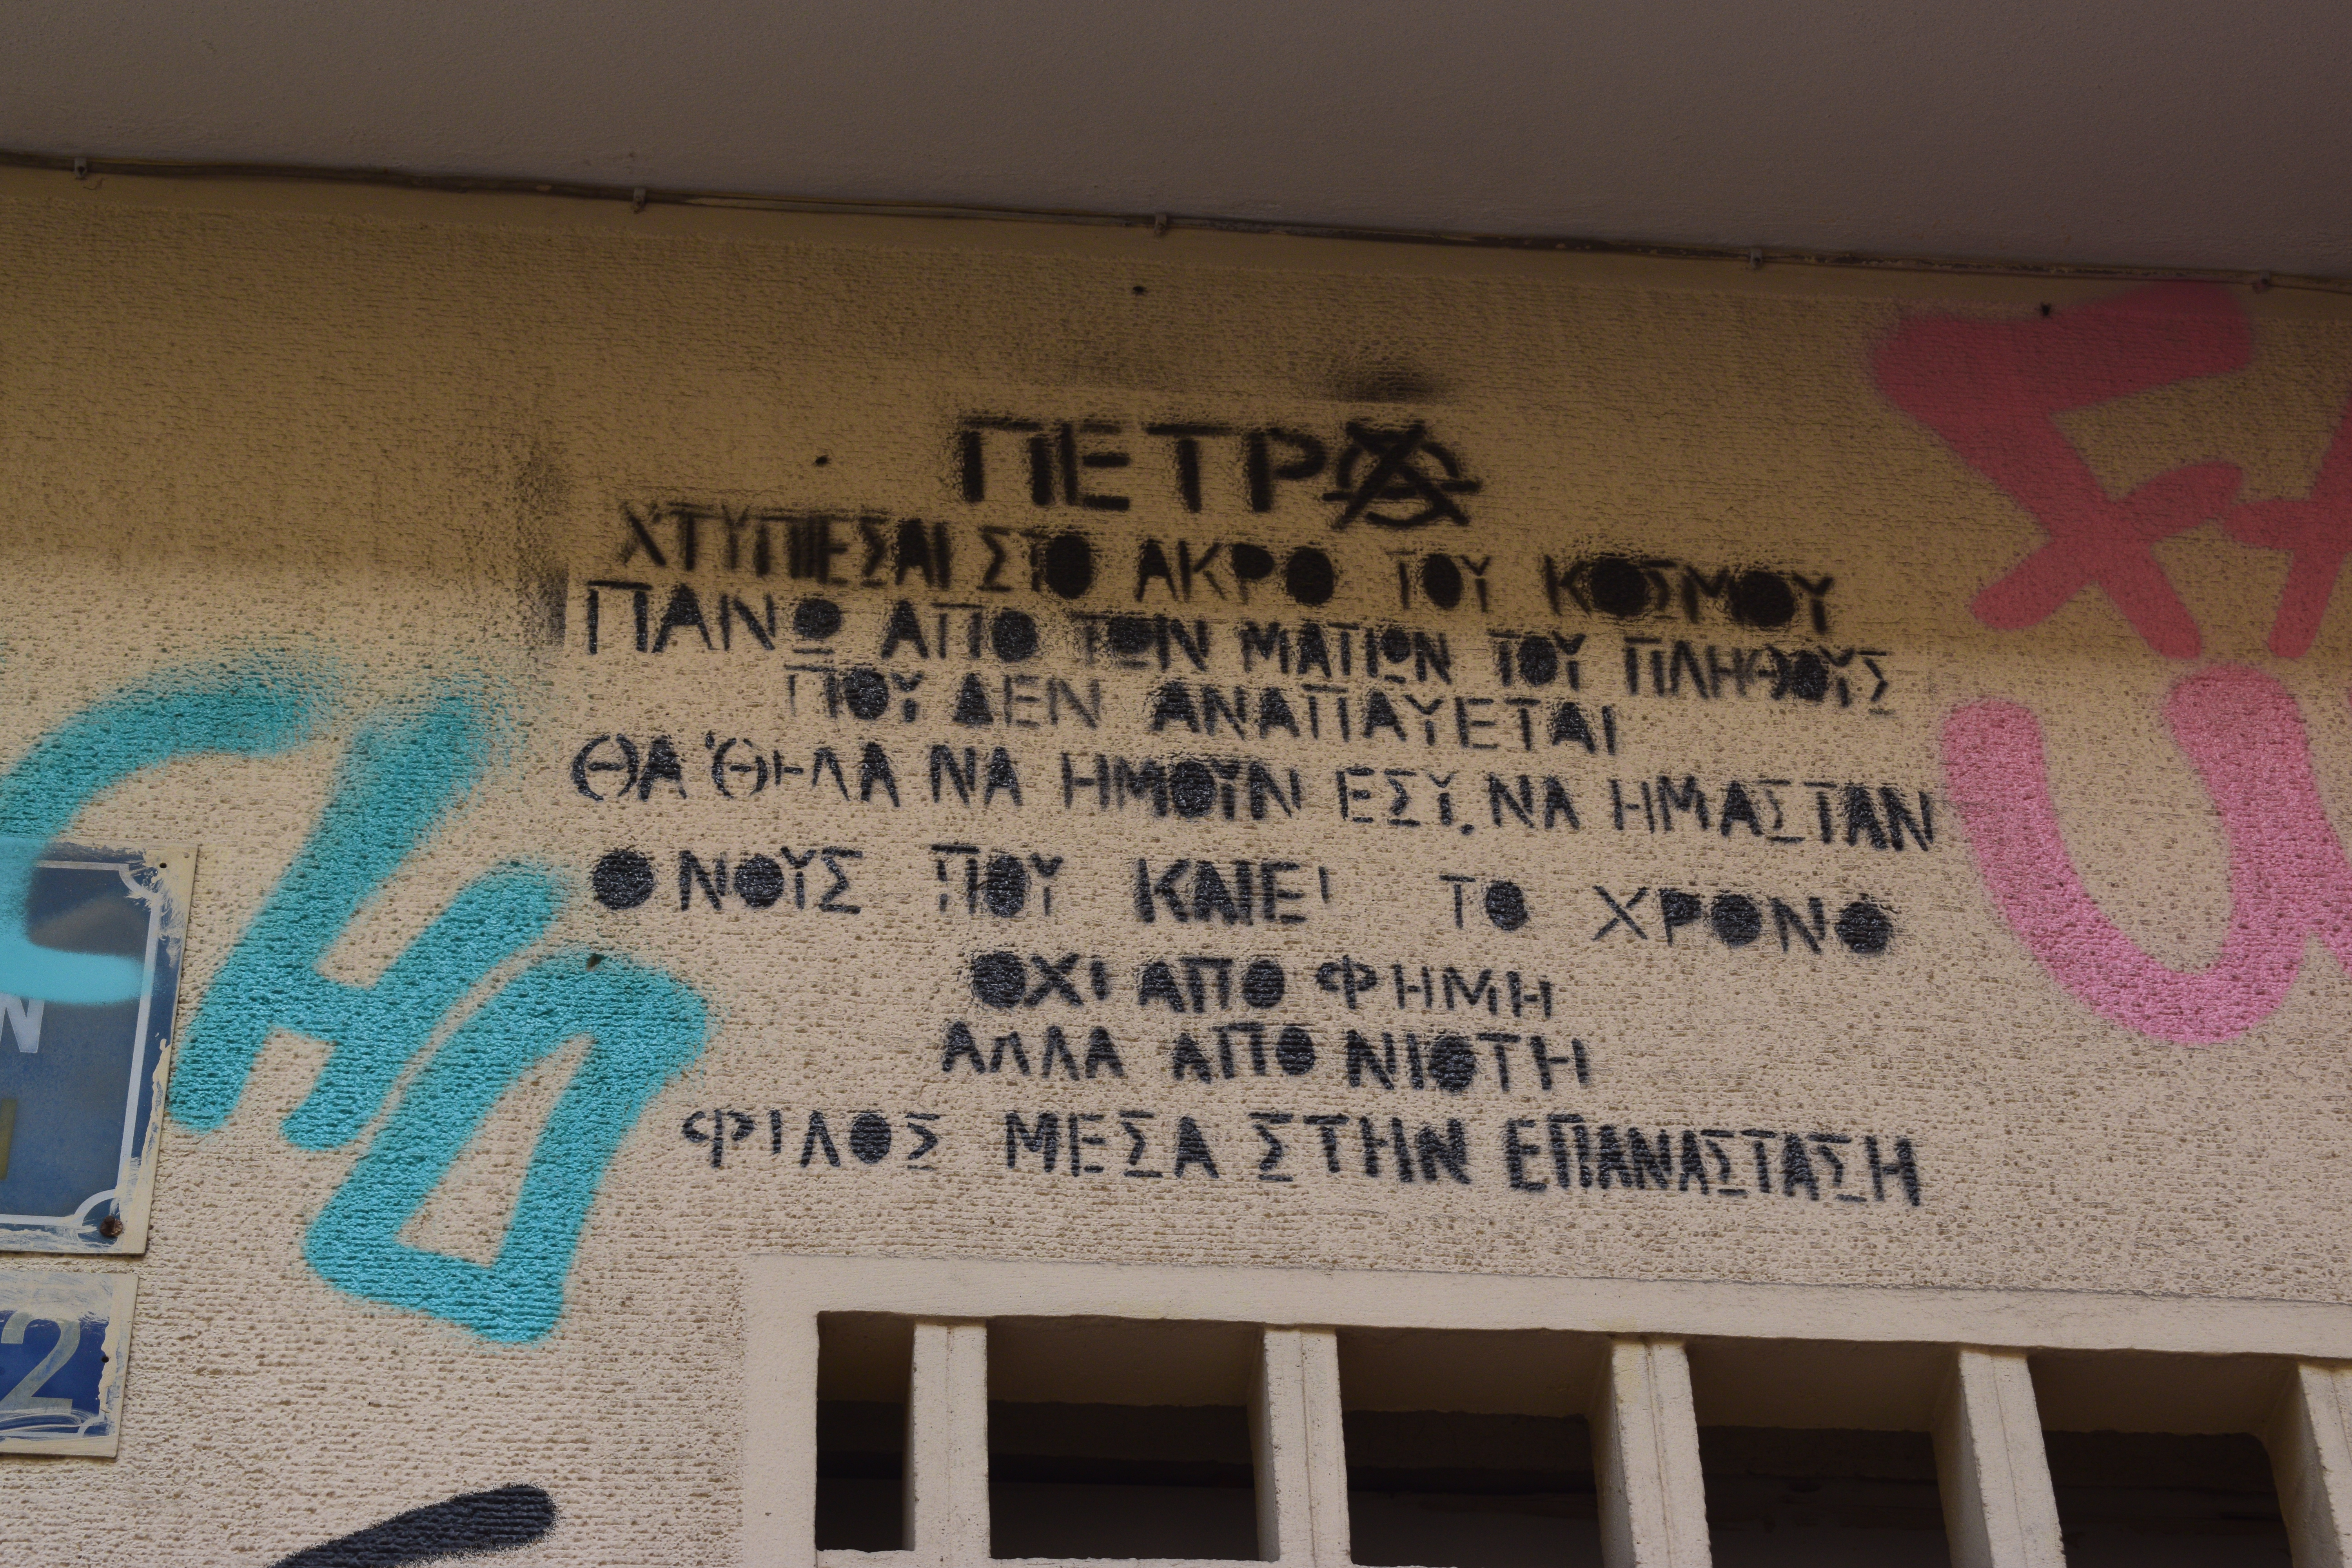 ΠΕΤΡΑ
ΧΤΥΠΙΕΣΑΙ ΣΤΟ ΑΚΡΟ ΤΟΥ ΚΟΣΜΟΥ
ΠΑΝΩ ΑΠΟ ΤΩΝ ΜΑΤΙΩΝ ΤΟΥ ΠΛΗΘΟΥΣ
ΠΟΥ ΔΕΝ ΑΝΑΠΑΥΕΤΑΙ
ΘΑ 'ΘΗΛΑ ΝΑ ΗΜΟΥΝ ΕΣΥ, ΝΑ ΗΜΑΣΤΑΝ
Ο ΝΟΥΣ ΠΟΥ ΚΑΙΕΙ ΤΟ ΧΡΟΝΟ
ΟΧΙ ΑΠΟ ΦΗΜΗ
ΑΛΛΑ ΑΠΟ ΝΙΟΤΗ
ΦΙΛΟΣ ΜΕΣΑ ΣΤΗΝ ΕΠΑΝΑΣΤΑΣΗ
2